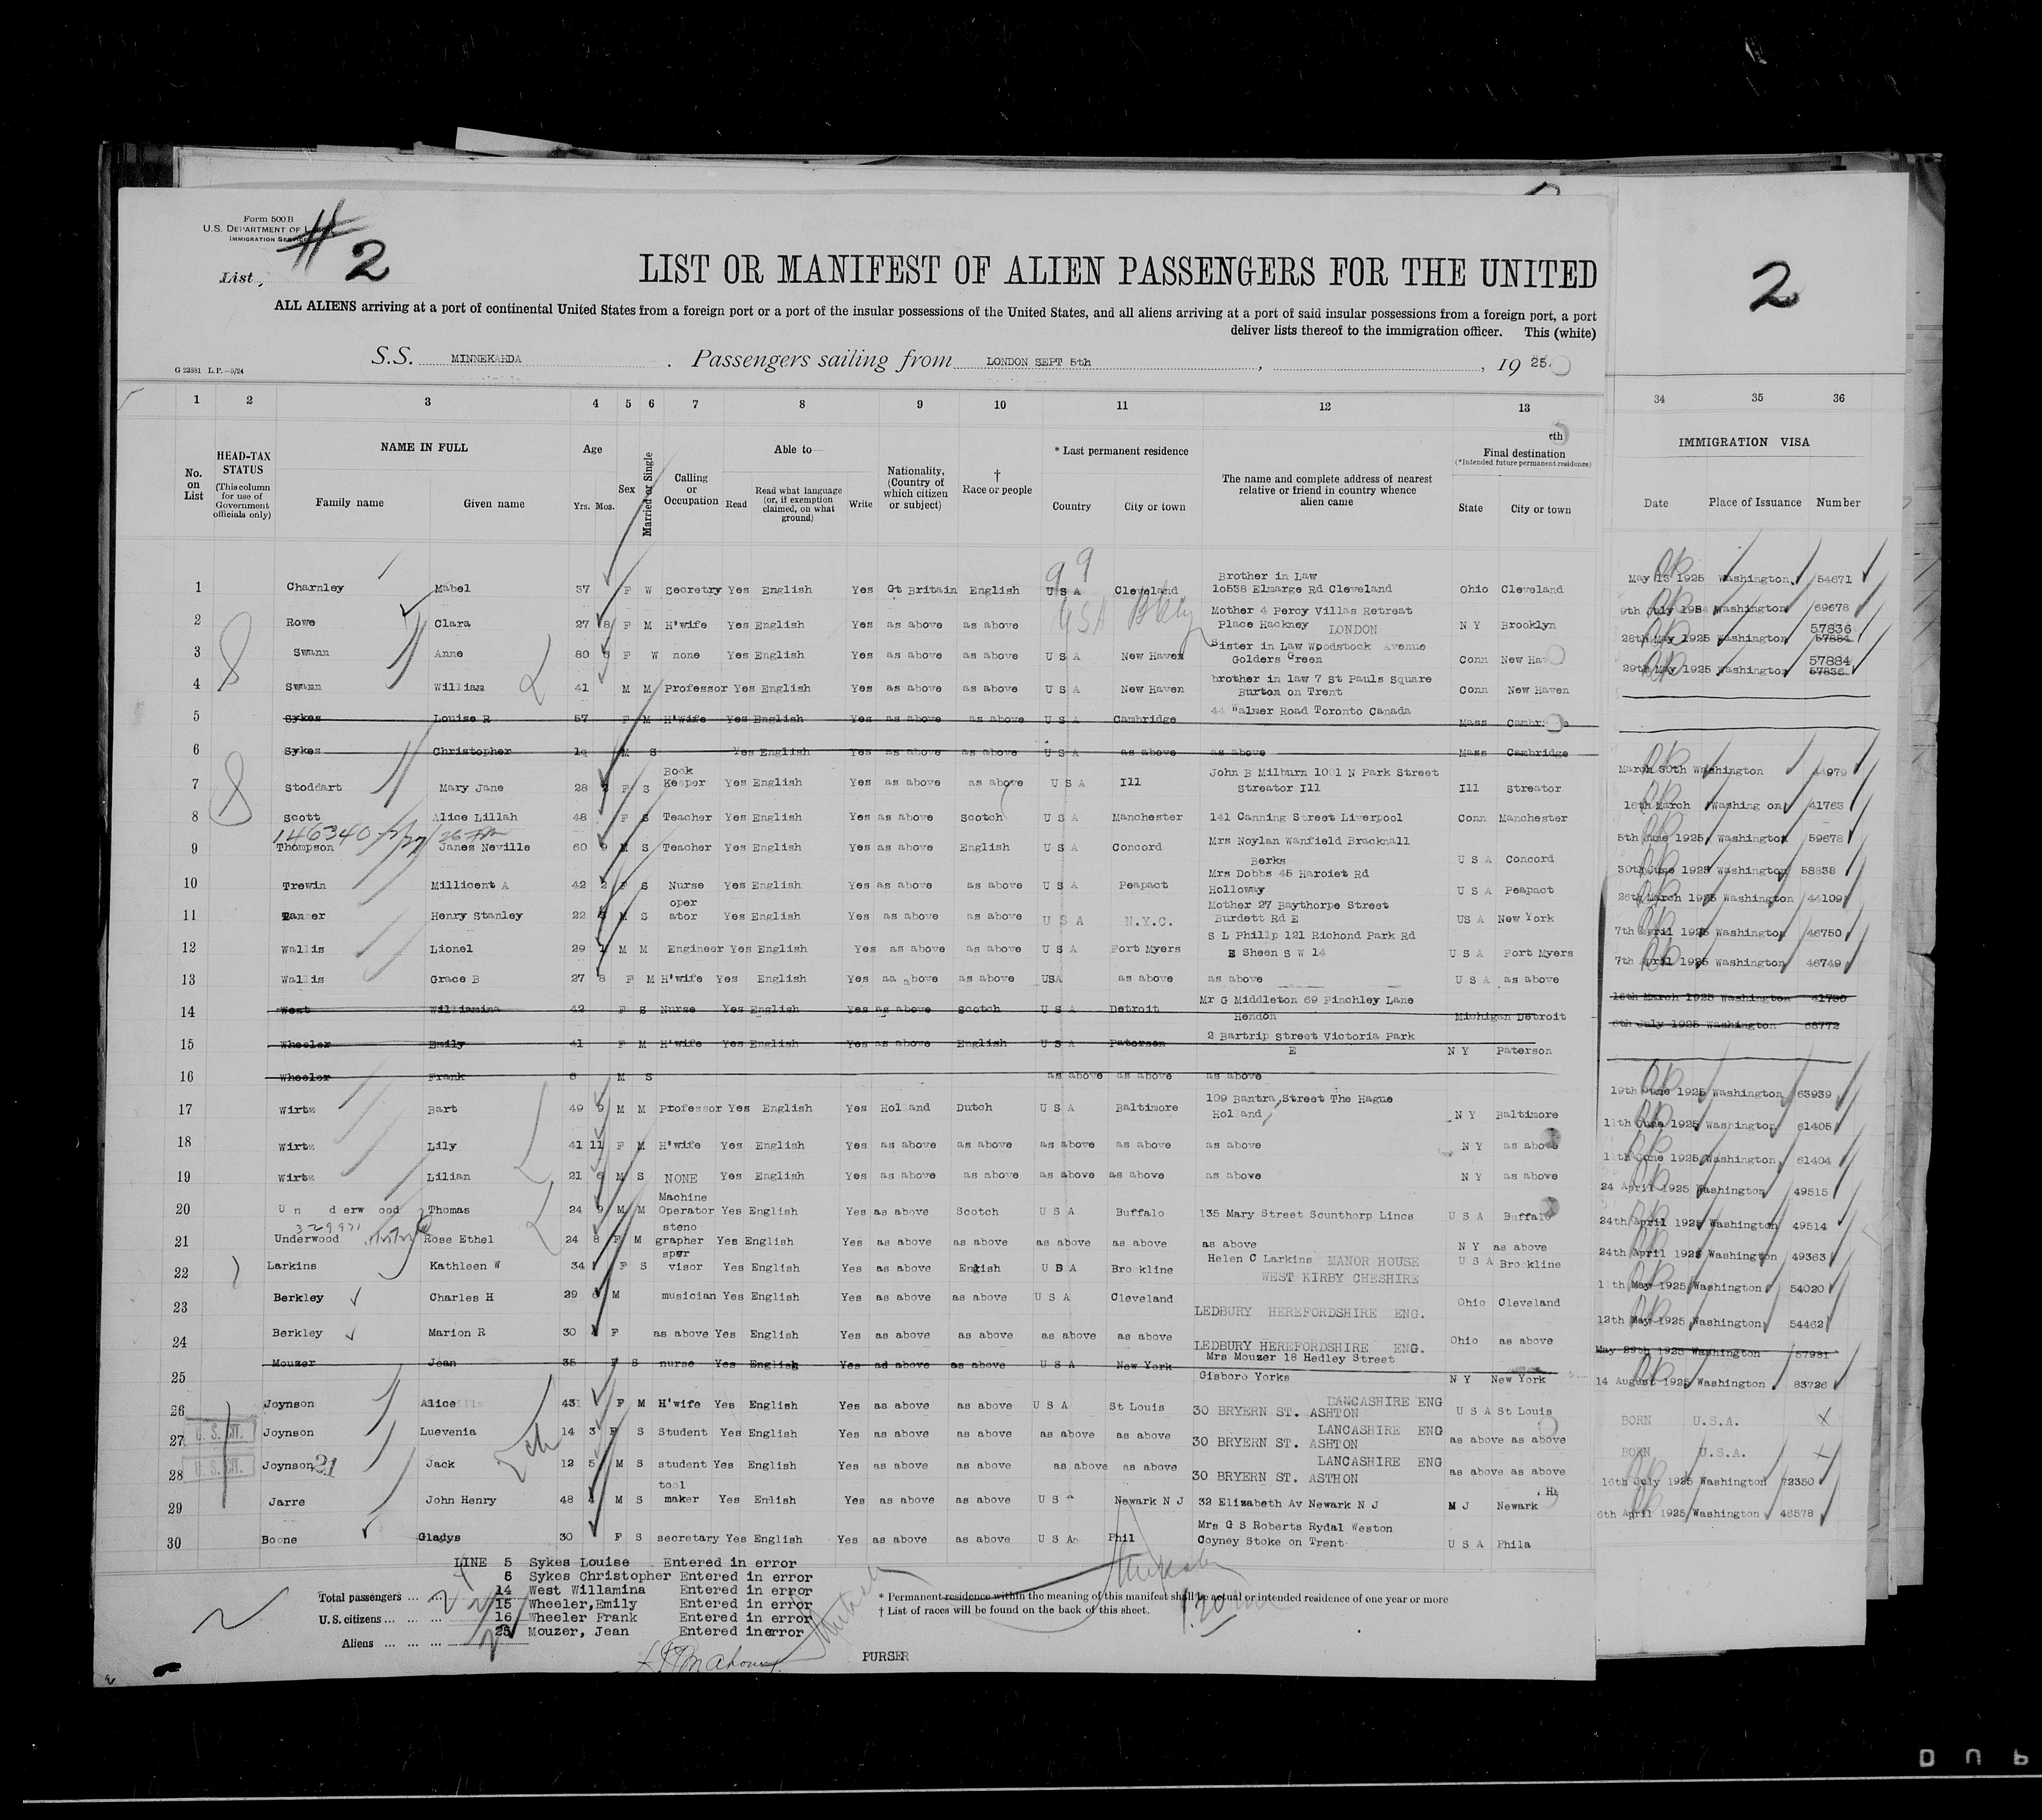 Form 500B
U.S. DEPARTMENT OF
IMMIGRATION SERVICE
List, # 2
LIST OR MANIFEST OF ALIEN PASSENGERS FOR THE UNITED
2
ALL ALIENS arriving at a port of continental United States from a foreign port or a port of the insular possessions of the United States, and all aliens arriving at a port of said insular possessions from a foreign port, a port
deliver lists thereof to the immigration officer. This (white)
S.S. MINNEKAHDA. Passengers sailing from LONDON SEPT 5th, , 19 25.
G 23881 L.P.—5/24
1 2 3 4 5 6 7 8 9 10 11 12 13 34 35 36
No. on List
HEAD-TAX STATUS (This column for use of Government officials only)
NAME IN FULL Family name Given name
Age Yrs. Mos.
Sex
Married or Single
Calling or Occupation
Able to— Read Read what language (or, if exemption claimed, on what ground) Write
Nationality, (Country of which citizen or subject)
† Race or people
* Last permanent residence Country City or town
The name and complete address of nearest relative or friend in country whence alien came
Final destination (*Intended future permanent residence) State City or town
IMMIGRATION VISA Date Place of Issuance Number
99
1 Charnley Mabel 37 F W Secretry Yes English Yes Gt Britain English U S A Cleveland Brother in Law 10538 Elmarge Rd Cleveland Ohio Cleveland May 13 1925 Washington 54671
2 Rowe Clara 27 8 F M H'wife Yes English Yes as above as above USA Mother 4 Percy Villas Retreat Place Hackney LONDON N Y Brooklyn 9th July Washington 69678
3 Swann Anne 80 F W none Yes English Yes as above as above U S A New Haven Sister in Law Woodstock Avenue Golders Green Conn New Ha 28th May 1925 Washington 57836 57884
4 Swann William 41 M M Professor Yes English Yes as above as above U S A New Haven brother in law 7 St Pauls Square Burton on Trent Conn New Haven 29th May 1925 Washington 57884 57836
5 Sykes Louise R 57 F M H'Wife Yes English Yes as above as above U S A Cambridge 44 Walmer Road Toronto Canada Mass Cambri
6 Sykes Christopher M S Yes English Yes as above as above U S A as above as above Mass Cambridge
7 Stoddart Mary Jane 28 F S Book Keeper Yes English Yes as above as above U S A Ill John B Milburn 1001 N Park Street Streator Ill Ill Streator March 30th Washington 44979
8 Scott Alice Lillah 48 F S Teacher Yes English Yes as above Scotch U S A Manchester 141 Canning Street Liverpool Conn Manchester 16th March Washing on 41763
146340
9 Thompson Janes Neville 60 9 M S Teacher Yes English Yes as above English U S A Concord Mrs Noylan Wanfield Bracknall Berks U S A Concord 5th June 1925 Washington 59678
10 Trewin Millicent A 42 2 F S Nurse Yes English Yes as above as above U S A Peapact Mrs Dobbs 45 Haroiet Rd Holloway U S A Peapact 30th June 1925 Washington 58838
11 Tanner Henry Stanley 22 M S oper ator Yes English Yes as above as above U S A N.Y.C. Mother 27 Baythorpe Street Burdett Rd E US A New York 26th March 1925 Washington 44109
12 Wallis Lionel 29 1 M M Engineer Yes English Yes as above as above U S A Fort Myers S L Philip 121 Richond Park Rd E Sheen S W 14 U S A Fort Myers 7th April 1925 Washington 46750
13 Wallis Grace B 27 8 F M H'wife Yes English Yes aa above as above USA as above as above U S A as above 7th April 1925 Washington 46749
14 West Williamina 42 F S Nurse Yes English Yes as above Scotch U S A Detroit Mr G Middleton 69 Finchley Lane Hendon Michigan Detroit 16th March 1925 Washington 41780
15 Wheeler Emily 41 F M H'wife Yes English Yes as above English U S A Paterson 2 Bartrip Street Victoria Park E N Y Paterson 6th July 1925 Washington 68772
16 Wheeler Frank 6 M S as above as above as above
17 Wirtz Bart 49 9 M M Professor Yes English Yes Holland Dutch U S A Baltimore 109 Bantra Street The Hague Holland N Y Baltimore 19th June 1925 Washington 63939
18 Wirtz Lily 41 11 F M H'wife Yes English Yes as above as above as above as above as above N Y as above 11th June 1925 Washington 61405
19 Wirtz Lilian 21 6 M S NONE Yes English Yes as above as above as above as above as above N Y as above 1 th June 1925 Washington 61404
20 Un derw ood Thomas 24 9 M M Machine Operator Yes English Yes as above Scotch U S A Buffalo 135 Mary Street Scunthorp Lincs U S A Buffalo 24 April 1925 Washington 49515
329971
21 Underwood Rose Ethel 24 8 F M steno grapher Yes English Yes as above as above as above as above as above N Y as above 24th April 1925 Washington 49514
22 Larkins Kathleen W 34 F S sper visor Yes English Yes as above English U S A Brookline Helen C Larkins MANOR HOUSE WEST KIRBY CHESHIRE U S A Brookline 24th April 1925 Washington 49363
23 Berkley Charles H 29 M musician Yes English Yes as above as above U S A Cleveland LEDBURY HEREFORDSHIRE ENG. Ohio Cleveland 1 th May 1925 Washington 54020
24 Berkley Marion R 30 F as above Yes English Yes as above as above as above as above LEDBURY HEREFORDSHIRE ENG. Ohio as above 12th May 1925 Washington 54462
25 Mouzer Jean 35 F S nurse Yes English Yes ad above as above U S A New York Mrs Mouzer 18 Hedley Street Gisboro Yorks N Y New York May 29th 1925 Washington 57981
26 Joynson Alice 43 F M H'wife Yes English Yes as above as above U S A St Louis 30 BRYERN ST. ASHTON LANCASHIRE ENG U S A St Louis 14 August 1925 Washington 83726
27 U. S. CIT. Joynson Luevenia 14 3 F S Student Yes English Yes as above as above as above as above 30 BRYERN ST. ASHTON LANCASHIRE ENG as above as above BORN U.S.A. X
28 U. S. CIT. Joynson 21 Jack 12 5 M S student Yes English Yes as above as above as above as above 30 BRYERN ST. ASTHON LANCASHIRE ENG as above as above BORN U.S.A. X
29 Jarre John Henry 48 4 M S tool maker Yes Enlish Yes as above as above U S A Newark N J 32 Elizabeth Av Newark N J M J Newark 16th July 1925 Washington 72350
30 Boone Gladys 30 F S secretary Yes English Yes as above as above U S A Phil Mrs G S Roberts Rydal Weston Coyney Stoke on Trent U S A Phila 6th April 1925 Washington 46578
LINE 5 Sykes Louise Entered in error
6 Sykes Christopher Entered in error
14 West Willamina Entered in error
15 Wheeler,Emily Entered in error
16 Wheeler Frank Entered in error
25 Mouzer, Jean Entered inerror
Total passengers ... ...
U.S. citizens ... ... ...
Aliens ... ... ...
* Permanent residence within the meaning of this manifest shall be actual or intended residence of one year or more
† List of races will be found on the back of this sheet.
PURSER